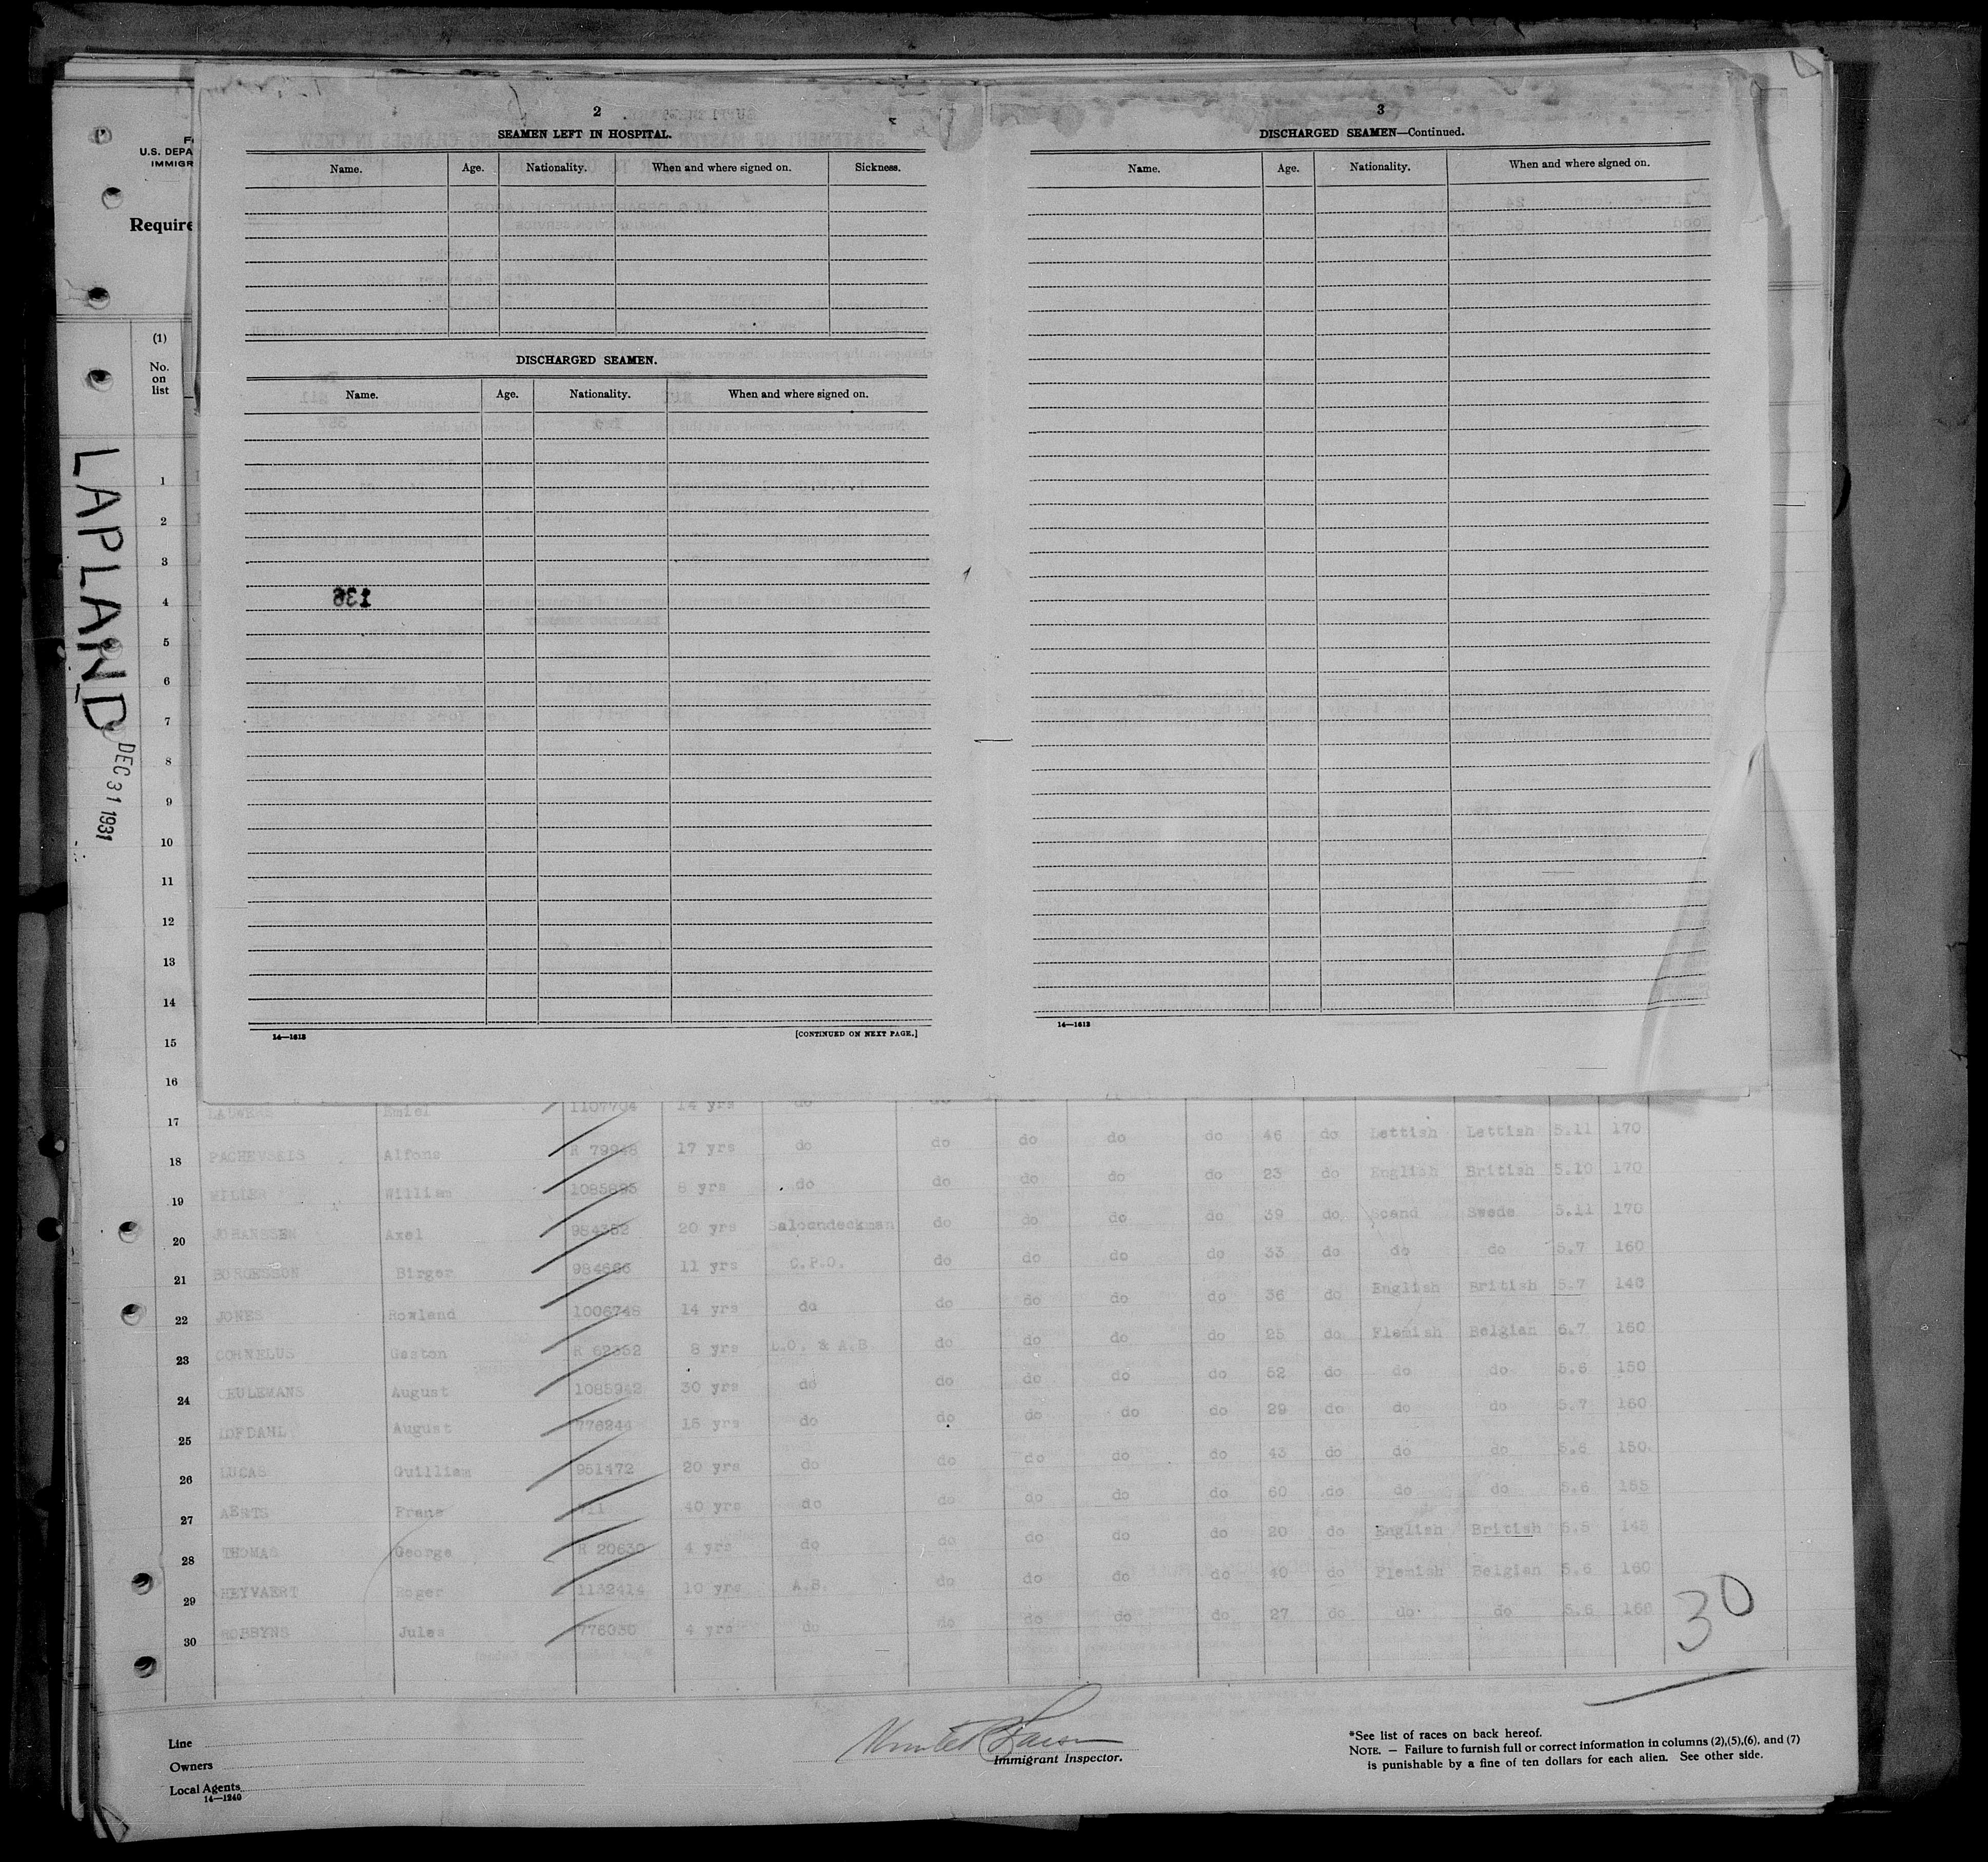 F
U.S. DEPA
IMMIGR
Require
(1)
No.
on
list
LAPLAND
DEC 31 1931
2
SEAMEN LEFT IN HOSPITAL.
Name. Age. Nationality. When and where signed on. Sickness.
DISCHARGED SEAMEN.
Name. Age. Nationality. When and where signed on.
136
14—1613 [CONTINUED ON NEXT PAGE.]
3
DISCHARGED SEAMEN—Continued.
Name. Age. Nationality. When and where signed on.
14—1613
1
2
3
4
5
6
7
8
9
10
11
12
13
14
15
16
17 LAUWERS Emiel 1107704 14 yrs do do
18 PACHEVSKIS Alfons R 79948 17 yrs do do do do do 46 do Lettish Lettish 5.11 170
19 MILLER William 1085895 8 yrs do do do do do 23 do English British 5.10 170
20 JOHANSSEN Axel 984352 20 yrs Saloondeckman do do do do 39 do Scand Swede 5.11 170
21 BORGESSON Birger 984666 11 yrs C.P.O. do do do do 33 do do do 5.7 160
22 JONES Rowland 1006748 14 yrs do do do do do 36 do English British 5.7 140
23 CORNELUS Gaston R 62352 8 yrs L.O. & A.B do do do do 25 do Flemish Belgian 5.7 160
24 CEULEMANS August 1085942 30 yrs do do do do do 52 do do do 5.6 150
25 LOFDAHL August 776244 15 yrs do do do do do 29 do do do 5.7 160
26 LUCAS Guilliam 951472 20 yrs do do do do do 43 do do do 5.6 150
27 AERTS Frans 40 yrs do do do do do 60 do do do 5.6 155
28 THOMAS George R 20630 4 yrs do do do do do 20 do English British 5.5 145
29 HEYVAERT Roger 1132414 10 yrs A.B. do do do do 40 do Flemish Belgian 5.6 160
30 ROBBYNS Jules 776030 4 yrs do do do do do 27 do do do 5.6 168
30
Line
Owners
Local Agents
14—1240
Immigrant Inspector.
*See list of races on back hereof.
NOTE. — Failure to furnish full or correct information in columns (2),(5),(6), and (7)
is punishable by a fine of ten dollars for each alien. See other side.